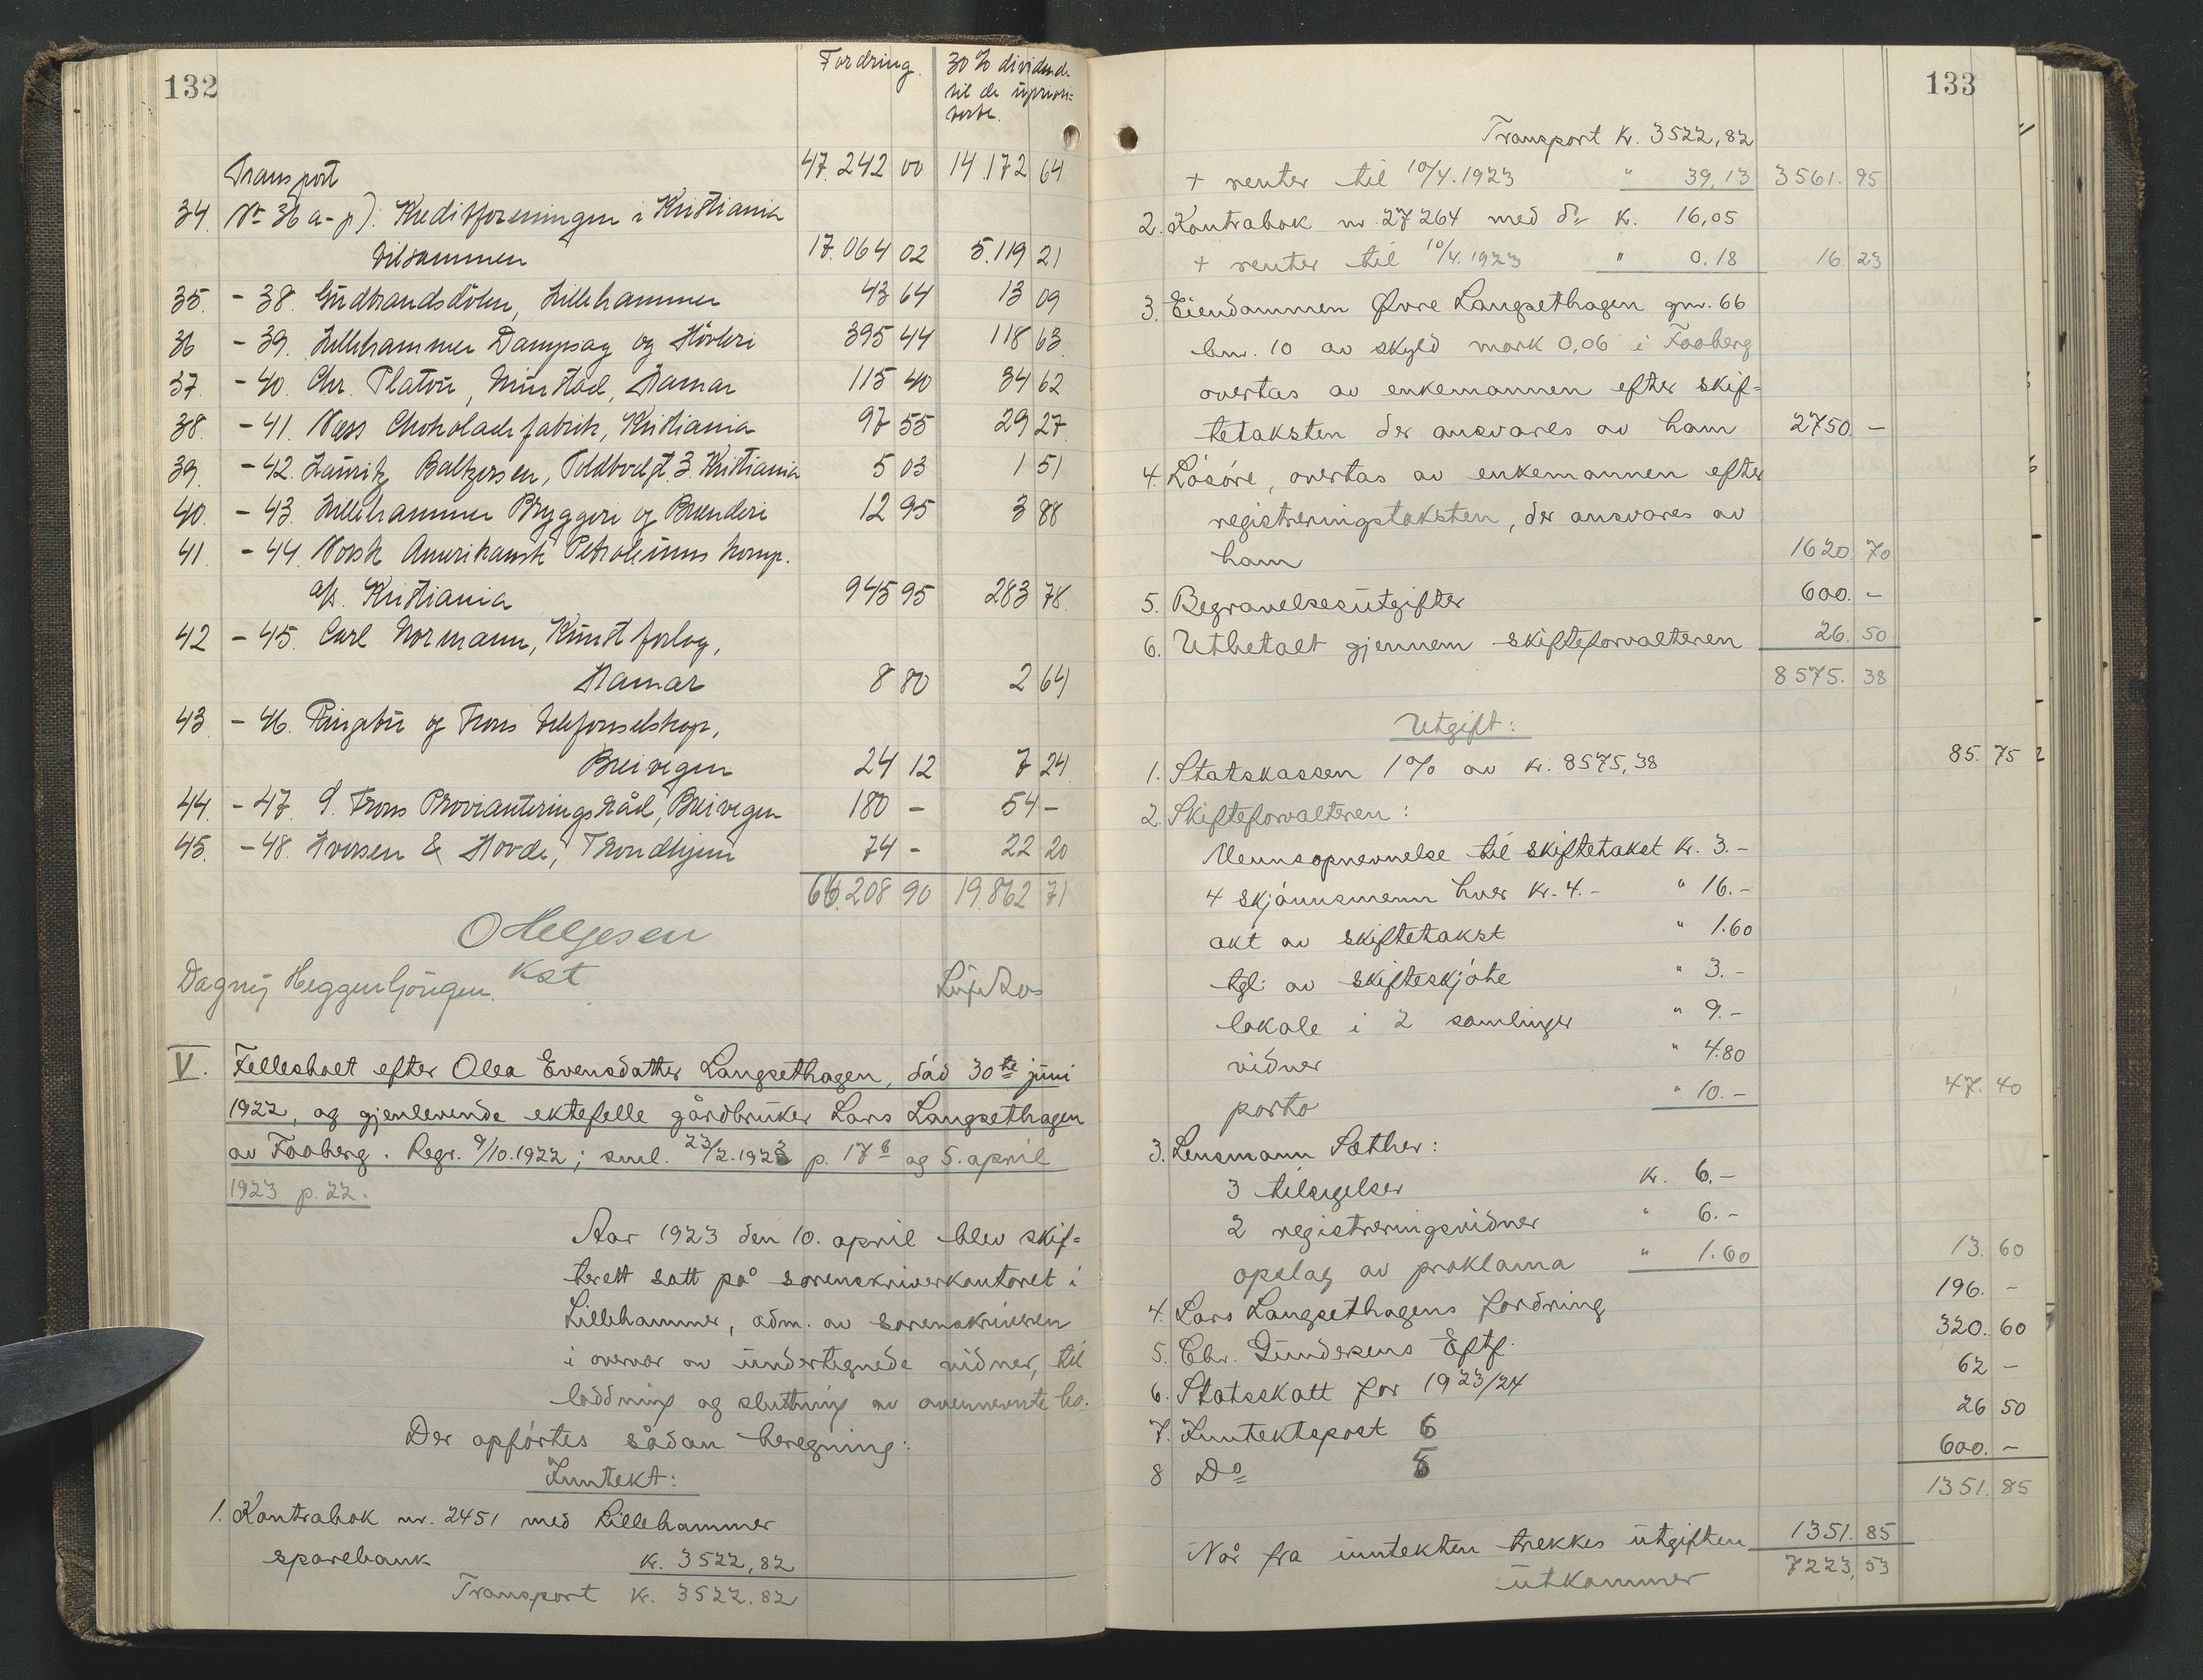 132
Fordring. 30 % dividende
til de upriori=
terte.
Transport 47.242 00 14.172 64
34. No 36 a-p): Kreditforeningen i Kristiania
tilsammen 17.064 02 5.119 21
35. - 38. Gudbrandsdølen, Lillehammer 43 64 13 09
36 - 39. Lillehammer Dampsag og Høvleri 395 44 118 63
37. - 40. Chr. Platou, Hamar 115 40 34 62
38. - 41. Næss Chokoladefabrik, Kristiania 97 55 29 27
39. - 42. Lauritz Baltzersen, Toldbodgt. 3. Kristiania 5 03 1 51
40. - 43. Lillehammer Bryggeri og Brenderi 12 95 3 88
41 - 44. Norsk Amerikansk Petroleums komp.
a/s. Kristiania 945 95 283 78.
42 - 45. Carl Normann, Kunstforlag,
Hamar 8 80 2 64
43 - 46. Ringebu og Frons telefonselskap,
Breivegen 24 12 7 24
44. - 47. S. Frons Provianteringsråd, Breivegen 180 - 54 -
45. - 48. Iversen & Hovde, Trondhjem 74 - 22 20
66.208 90 19.862 71
O Helgesen
Kst
Dagny Heggenhougen.
V. Fellesboet efter Olea Evensdatter Langsethagen, død 30te juni
1922, og gjenlevende ektefelle gårdbruker Lars Langsethagen
av Faaberg. Regr. 9/10.1922; sml. 23/2.1923 p. 17b og 5. april
1923 p. 22.
Aar 1923 den 10. april blev skif=
terett satt på sorenskriverkontoret i
Lillehammer, adm. av sorenskriveren
i overvær av undertegnede vidner, til
loddning og slutning av ovennevnte bo.
Der opførtes sådan beregning:
Inntekt:
1. Kontrabok nr. 2451 med Lillehammer
sparebank kr. 3522,82
Transport kr. 3522.82
133
Transport kr. 3522,82
+ renter til 10/4.1923 " 39,13 3561. 95
2. Kontrabok nr. 27264 med do kr. 16,05
+ renter til 10/4.1923 " 0.18 16. 23
3. Eiendommen Øvre Langsethagen gnr. 66
bnr. 10 av skyld mark 0,06 i Faaberg
overtas av enkemannen efter skif=
tetaksten der ansvares av ham 2750. -
4. Løsøre, overtas av enkemannen efter
registreringstaksten, der ansvares av
ham 1620 70
5. Begravelsesutgifter 600. -
6. Utbetalt gjennem skifteforvalteren 26. 50
8575. 38
Utgift:
1. Statskassen 1 % av kr. 8575,38 85. 75
2. Skifteforvalteren:
Mennsopnevnelse til skiftetakst kr. 3.-
4 skjønnsmenn hver kr. 4.- " 16.-
akt av skiftetakst " 1.60
tgl. av skifteskjøte " 3.-
lokale i 2 samlinger " 9.-
vidner " 4.80
porto " 10.- 47. 40
3. Lensmann Sæther:
3 tilsigelser kr. 6.-
2 registreringsvidner " 6.-
opslag av proklama " 1.60 13. 60
4. Lars Langsethagens fordring 196. -
5. Chr. Gundersens Eftf. 320. 60
6. Statsskatt for 1923/24 62 -
7. Inntektspost 6 26 50
8 Do 5 600. -
1351. 85
Når fra inntekten trekkes utgiften 1351. 85
utkommer 7223, 53